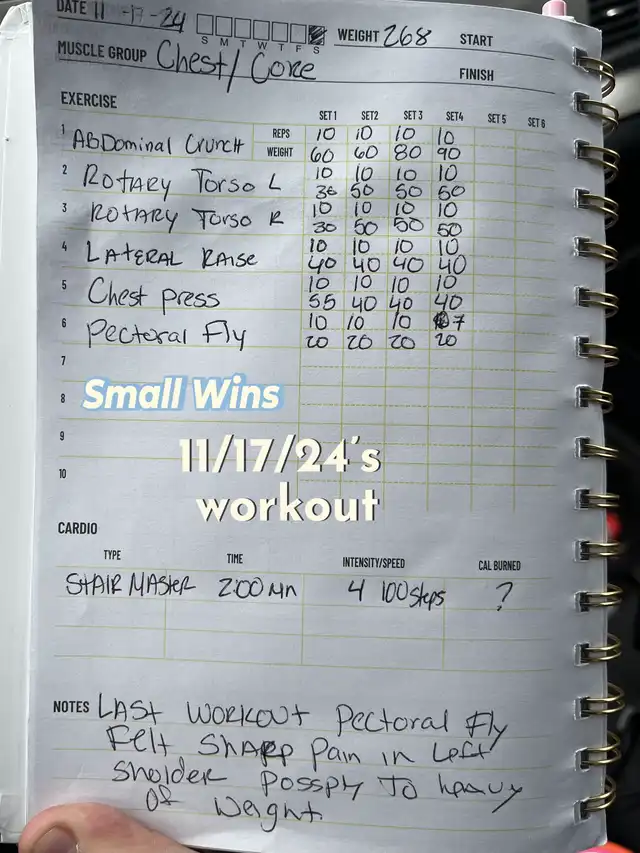 DATE 11 -17-24 WEIGHT 268 START
S M T W T F S
MUSCLE GROUP Chest/Core FINISH
EXERCISE SET 1 SET2 SET 3 SET4 SET 5 SET 6
1 ABDominal Crunch REPS 10 10 10 10
WEIGHT 60 60 80 90
2 ROTARY TORSO L 10 10 10 10
30 50 50 50
3 ROTARY TORSO R 10 10 10 10
30 50 50 50
4 LATERAL RAISE 10 10 10 10
40 40 40 40
5 Chest press 10 10 10 10
55 40 40 40
6 Pectoral Fly 10 10 10 7
20 20 20 20
7
8 Small Wins
9
11/17/24's
10
workout
CARDIO
TYPE TIME INTENSITY/SPEED CAL BURNED
STAIR MASTER 2:00 Mn 4 100 steps ?
NOTES LAST WORKOUT Pectoral Fly
Felt SHARP Pain in Left
Sholder Posspy To heavy
OF Weight.